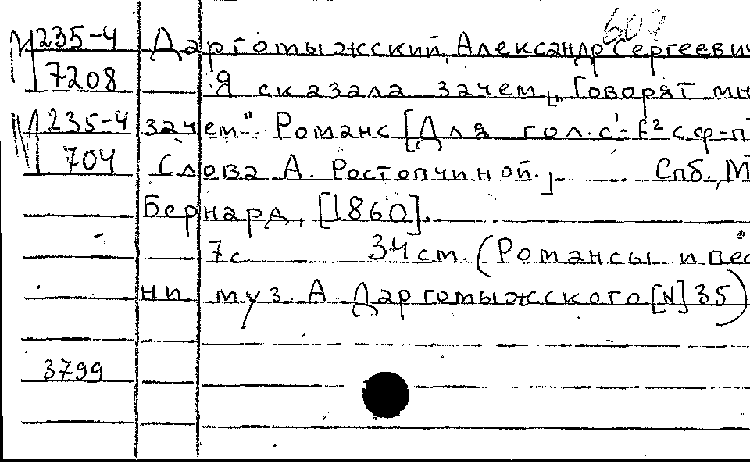 603
М 235-4 Даргомыжский, Александр Сергеевич
7208 Я сказала зачем „Говорят мн
М 235-4 зачем". Романс [Для гол. c'-f² с ф-п
704 Слова А. Ростопчиной.]. Спб., М
Бернард, [1860].
7 с 34 см (Романсы и пес
ни муз. А Даргомыжского [N] 35)
3799